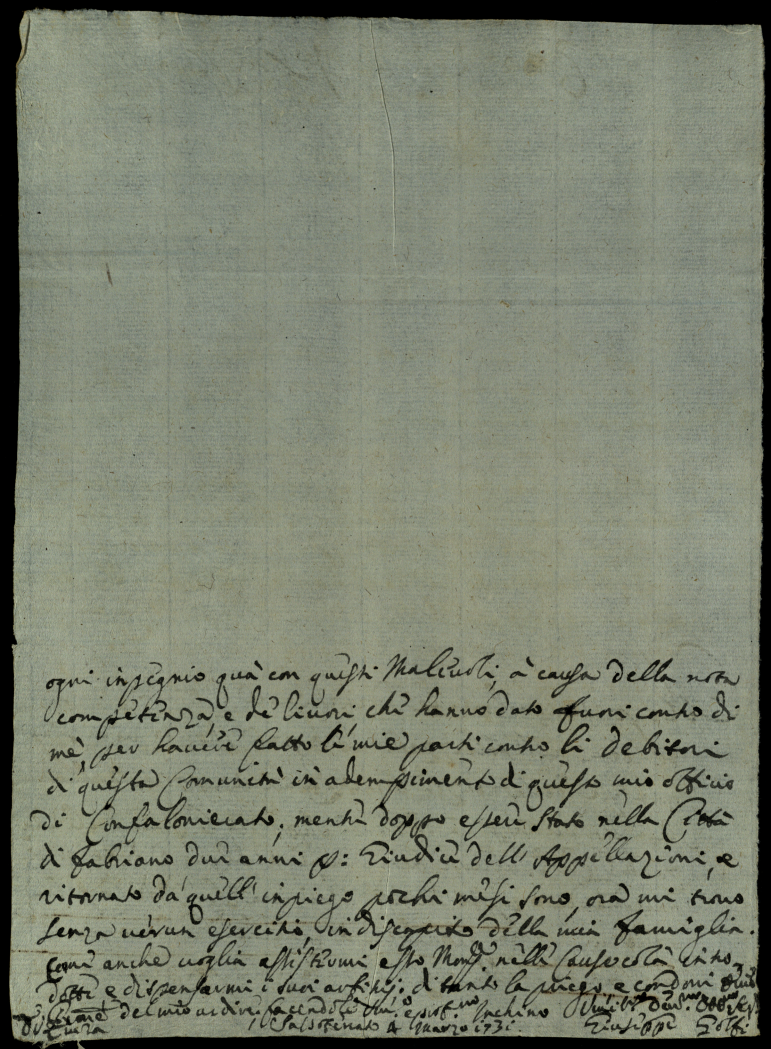 ogni inpegnio quà con questi Malevoli, à causa della nota
competenza, e de livori che hanno dato fuori contro di
mè, per havere fatto le mie parti contro li debitori
di questa Comunità in adempimento di questo mio officio
di Confalonierato, mentre doppo essere stato nella Città
di fabriano due anni p: Giudice dell' Appellazioni, e
ritornato da quell' inpiego pochi mesi sono, ora mi trovo
senza verun esercitio, in discapito della mia famiglia.
come anche voglia assistermi esso Monsre. nelle Cause colà intro
dotti, e dispensarmi i suoi di tanto la priego e condoni
del mio ardire. facendoli Um.o e prof.mo Inchino Umil.mo Dev.mo
Sassoferrato 4 Marzo 1731. Giuseppe Golfi